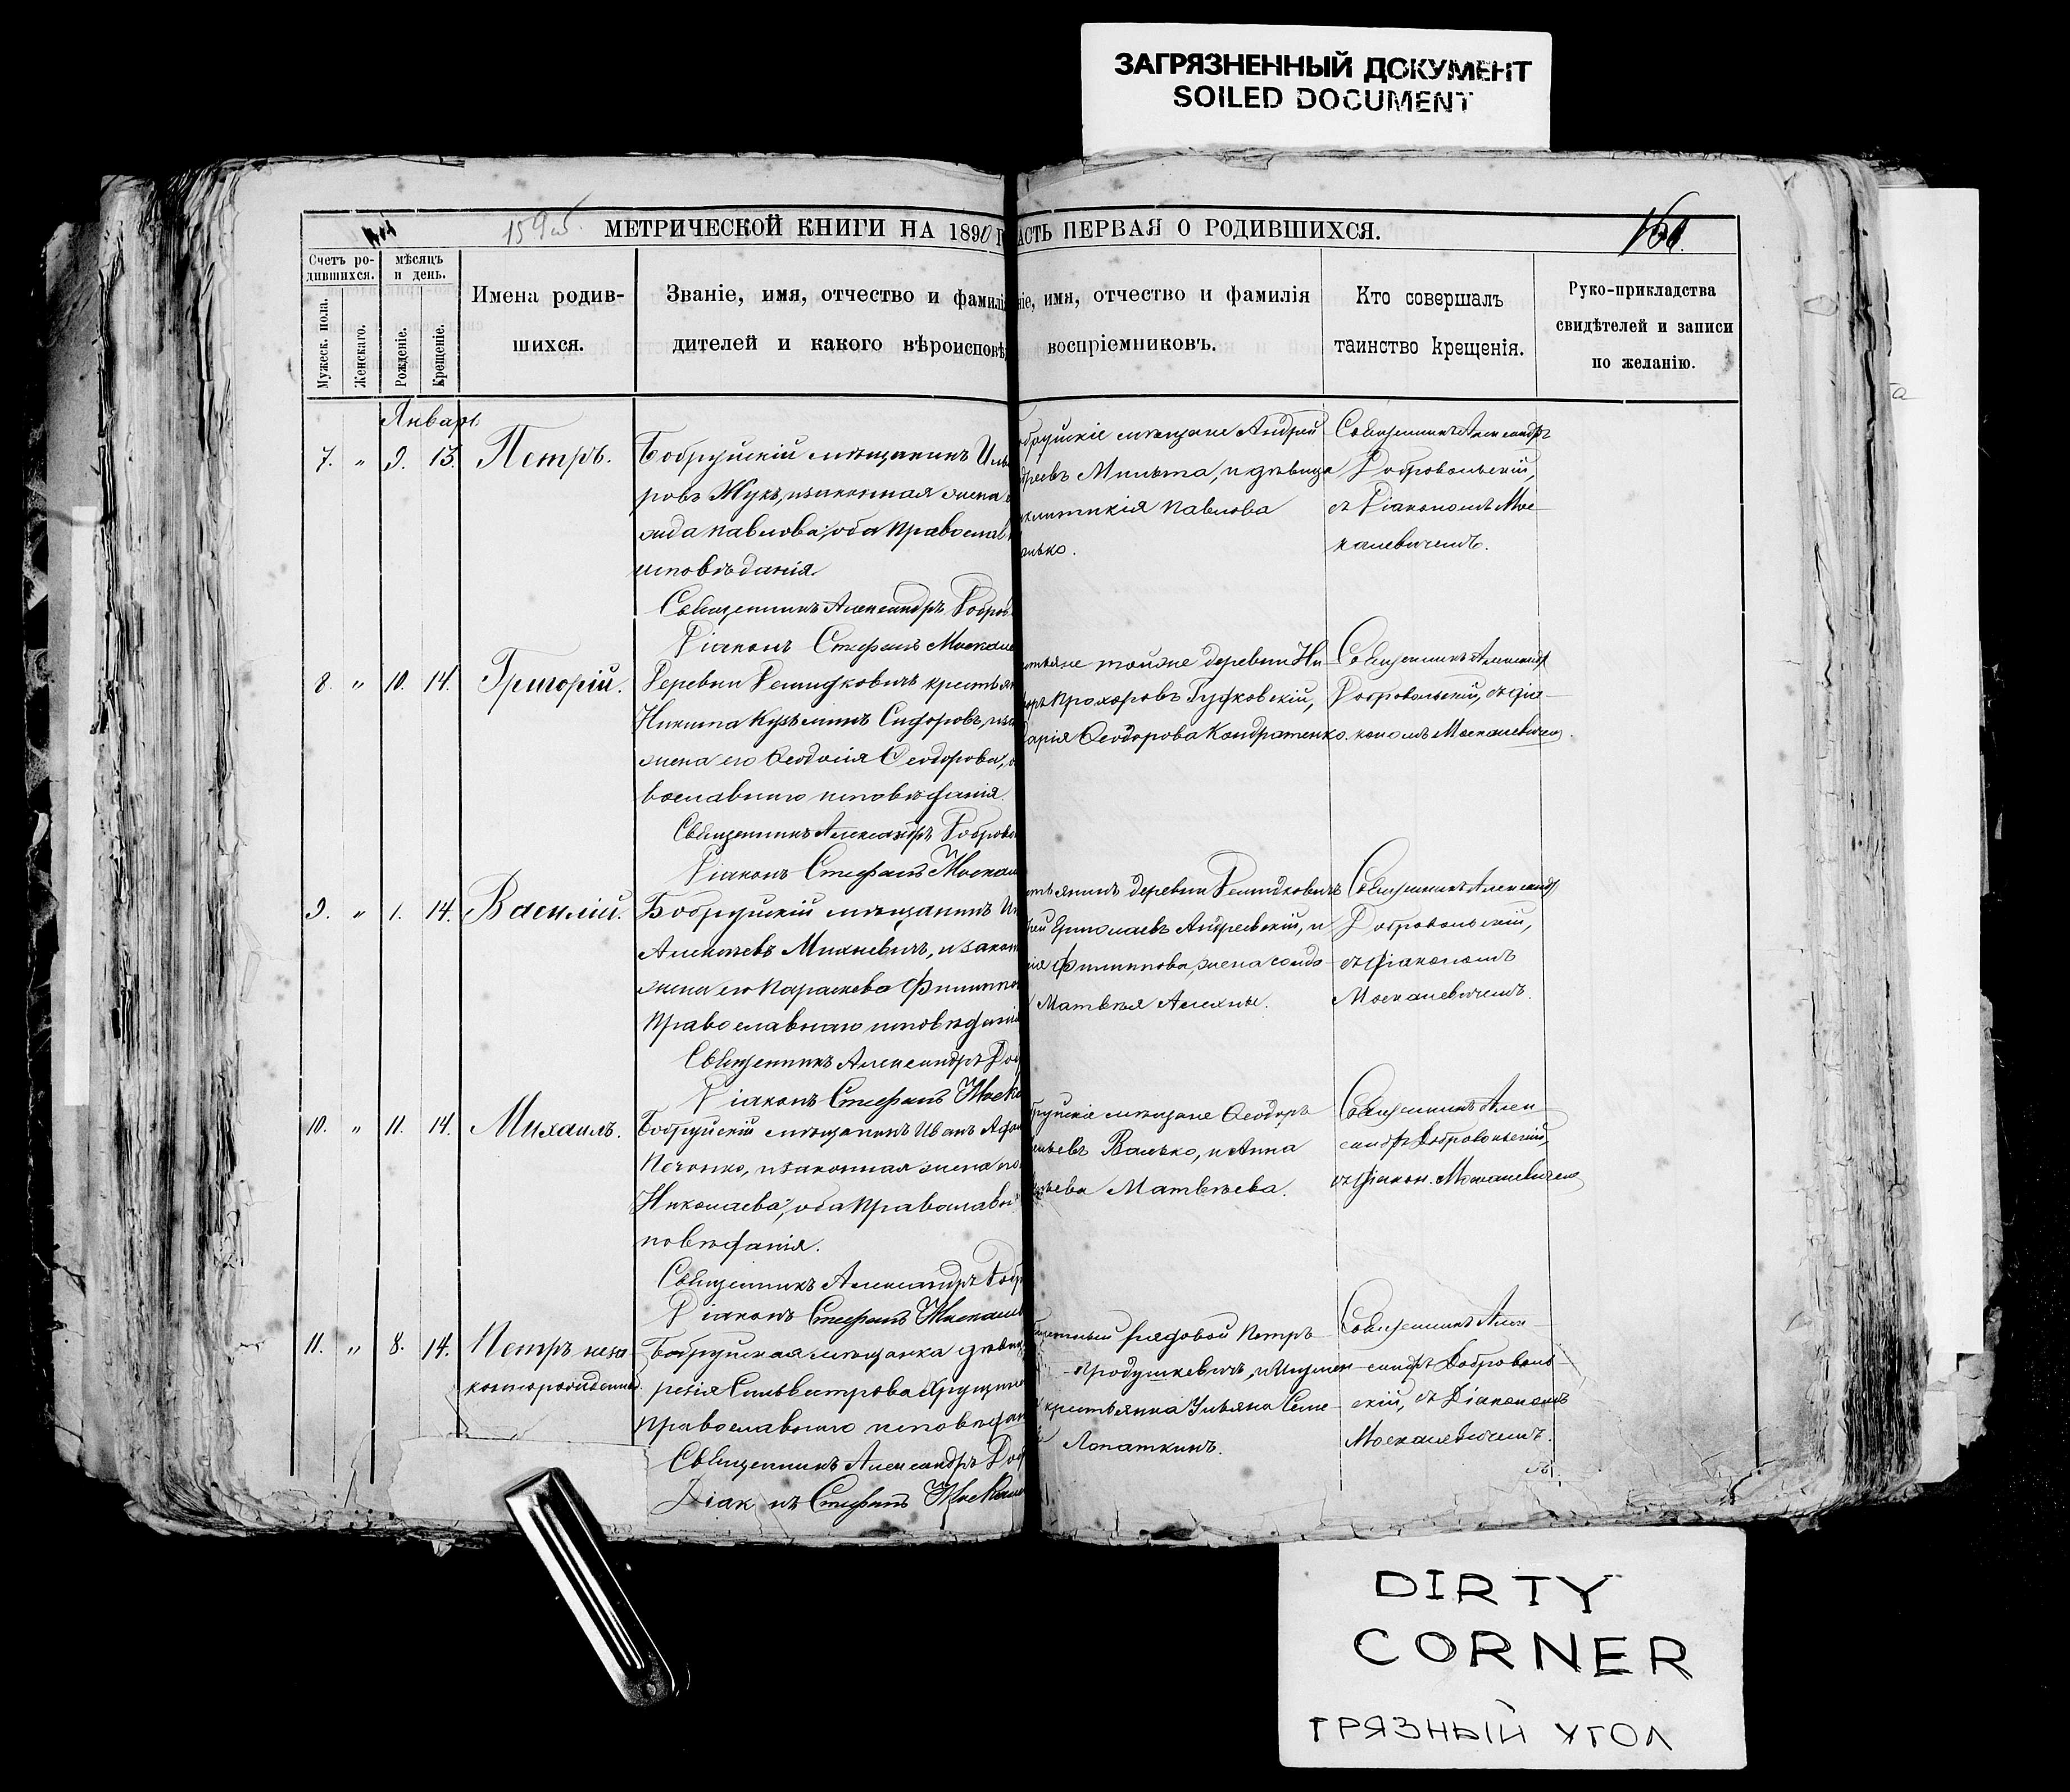 ЗАГРЯЗНЕННЫЙ ДОКУМЕНТ
SOILED DOCUMENT
159об.
МЕТРИЧЕСКОЙ КНИГИ НА 1890 Г
АСТЬ ПЕРВАЯ О РОДИВШИХСЯ.
Счетъ ро-
дившихся.
Мужеск. пола.
Женскаго.
мѣсяцъ
и день.
Рожденіе.
Крещеніе.
Имена родив-
шихся.
Званіе, имя, отчество и фамилі
дителей и какого вѣроисповѣ
ніе, имя, отчество и фамилія
воспріемниковъ.
Кто совершалъ
таинство крещенія.
Руко-прикладства
свидѣтелей и записи
по желанію.
Январь
7. " 9. 13. Петръ.
Бобруйскій мѣщанинъ Иль
ровъ Жукъ, и законная жена
лида Павлова, оба православ
исповѣданія.
Священникъ Александръ Добров
Діаконъ Стефанъ Москале
обруйскіе мѣщане Андрей
дреевъ Мильта, и дѣвица
Павлова
Священникъ Александръ
Добровольскій,
съ Діакономъ Мос-
калевичемъ.
8. " 10. 14. Григорій.
Деревни Демидковичъ крестьян
Никита Кузьминъ Сидоровъ, и за
жена его Ѳеодосія Ѳеодорова,
вославнаго исповѣданія.
Священникъ Александръ Доброво
Діаконъ Стефанъ Москал
стьяне тойже деревни Ни-
Прохоровъ Гудковскій,
арія Ѳеодорова Кондратенко.
Священникъ Александръ
Добровольскій, съ діа-
кономъ Москалевичемъ.
9. " 1. 14. Василій.
Бобруйскій мѣщанинъ
Алексѣевъ Михневичъ, и закон
жена его Параскева Филиппо
православнаго исповѣданія
Священникъ Александръ Доб
Діаконъ Стефанъ Моска
стьянинъ деревни Демидковичъ
Андреевскій, и
Филиппова, жена солда-
Матвѣя
Священникъ Александръ
Добровольскій,
съ Діакономъ
Москалевичемъ.
10. " 11. 14. Михаилъ.
Бобруйскій мѣщанинъ Иванъ
Печонко, и законная жена его
Николаева, оба православ
повѣданія.
Священникъ Александръ Добр
Діаконъ Стефанъ Москале
бруйскіе мѣщане Ѳеодоръ
Валько, и Анна
Матвѣева.
Священникъ Алек-
сандръ Добровольскій,
съ Діакон. Москалевичемъ
11. " 8. 14. Петръ неза-
коннорожденный.
Бобруйская мѣщанка дѣвиц
Сильвестрова
православнаго исповѣдан
Священникъ Александръ Доб
Діак нъ Стефанъ Москале
рядовой Петръ
крестьянка Ульяна Семе-
Лопаткинъ.
Священникъ Алек-
сандръ Доброволь-
скій, съ Діакономъ
Москалевичемъ.
DIRTY
CORNER
ГРЯЗНЫЙ УГОЛ